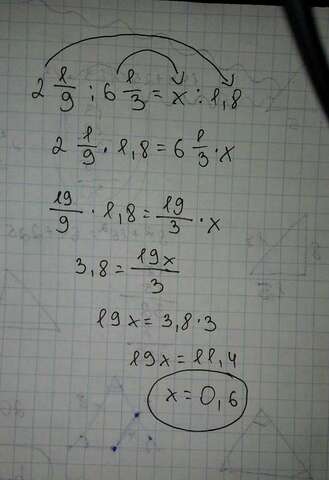 2 1/9 : 6 1/3 = x : 1,8
2 1/9 · 1,8 = 6 1/3 · x
19/9 · 1,8 = 19/3 · x
3,8 = 19x/3
19x = 3,8 · 3
19x = 11,4
x = 0,6